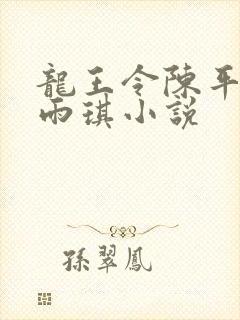 龍王令陳平
雨琪小説
孫翠鳳